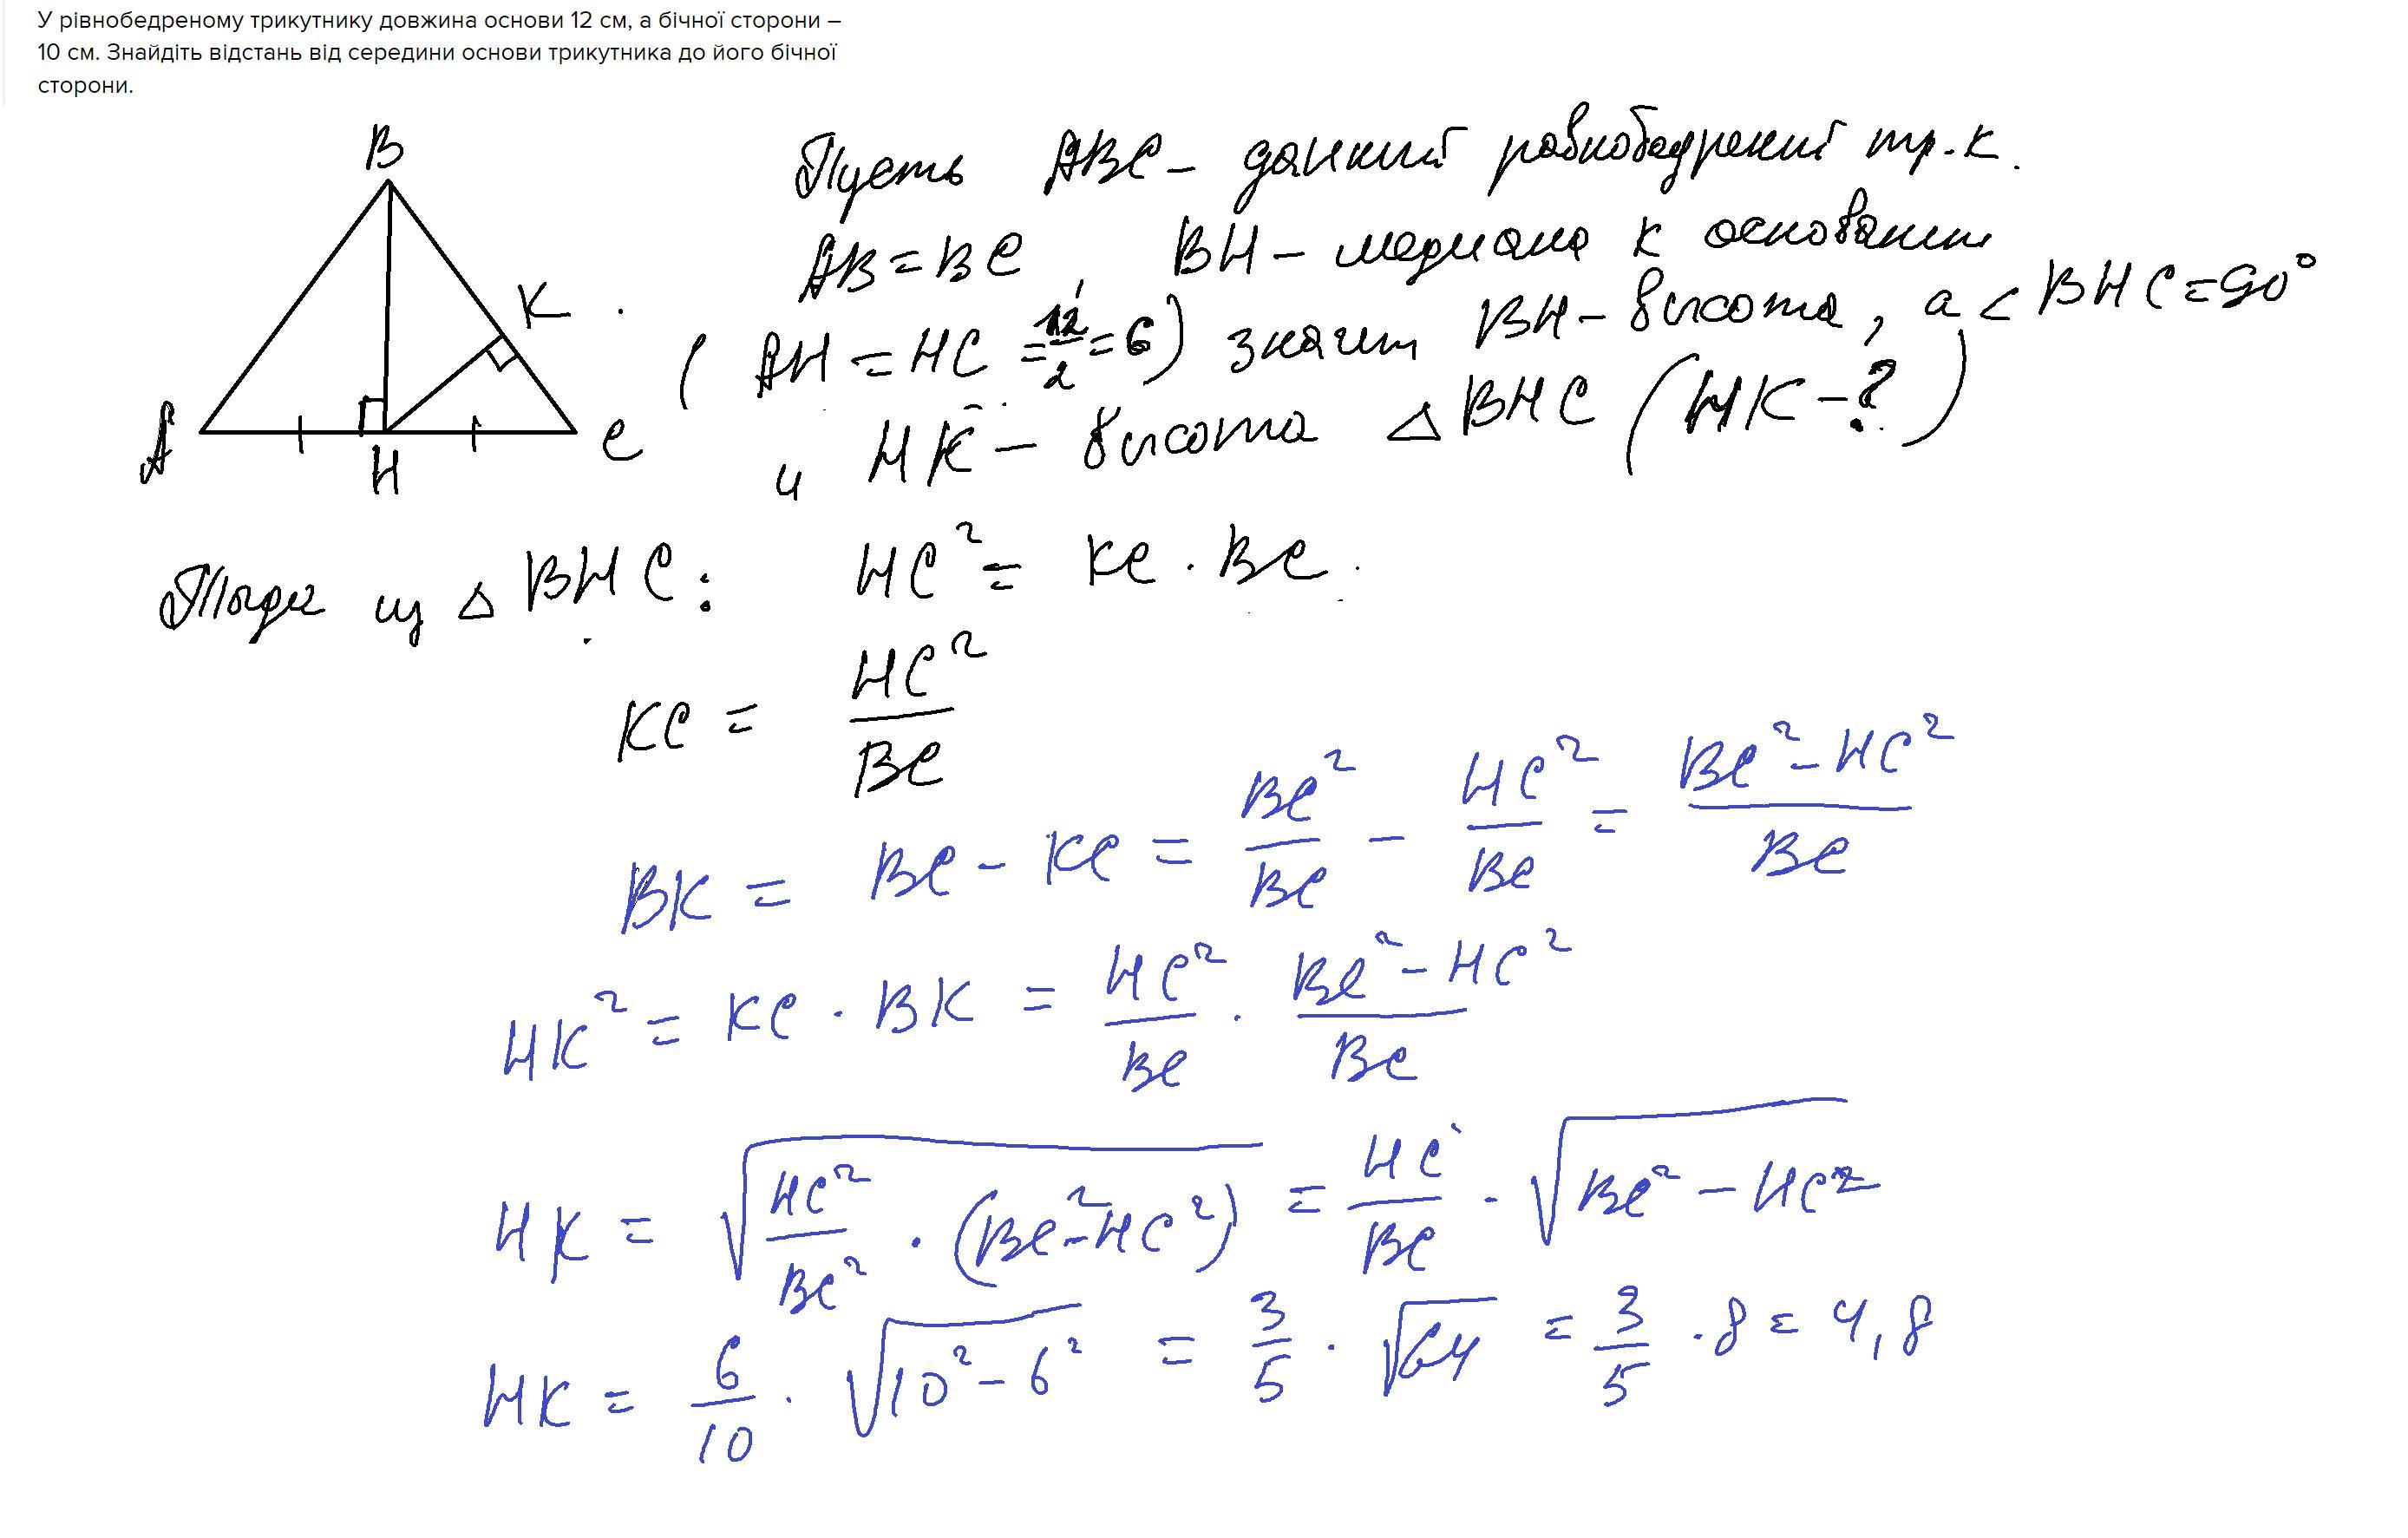 У рівнобедреному трикутнику довжина основи 12 см, а бічної сторони –
10 см. Знайдіть відстань від середини основи трикутника до його бічної
сторони.
B
K
A
H
C
Пусть ABC - данный равнобедрений тр.к.
AB = BC, BH - медиана к основанию
(AH = HC = 12/2 = 6) значит BH - высота, а < BHC = 90°
и HK - высота △ BHC (HK - ?)
Тогда из △ BHC: HC² = KC · BC.
KC = HC²/BC
BK = BC - KC = BC²/BC - HC²/BC = (BC² - HC²)/BC
HK² = KC · BK = HC²/BC · (BC² - HC²)/BC
HK = √(HC²/BC² · (BC² - HC²)) = HC/BC · √(BC² - HC²)
HK = 6/10 · √(10² - 6²) = 3/5 · √64 = 3/5 · 8 = 4,8